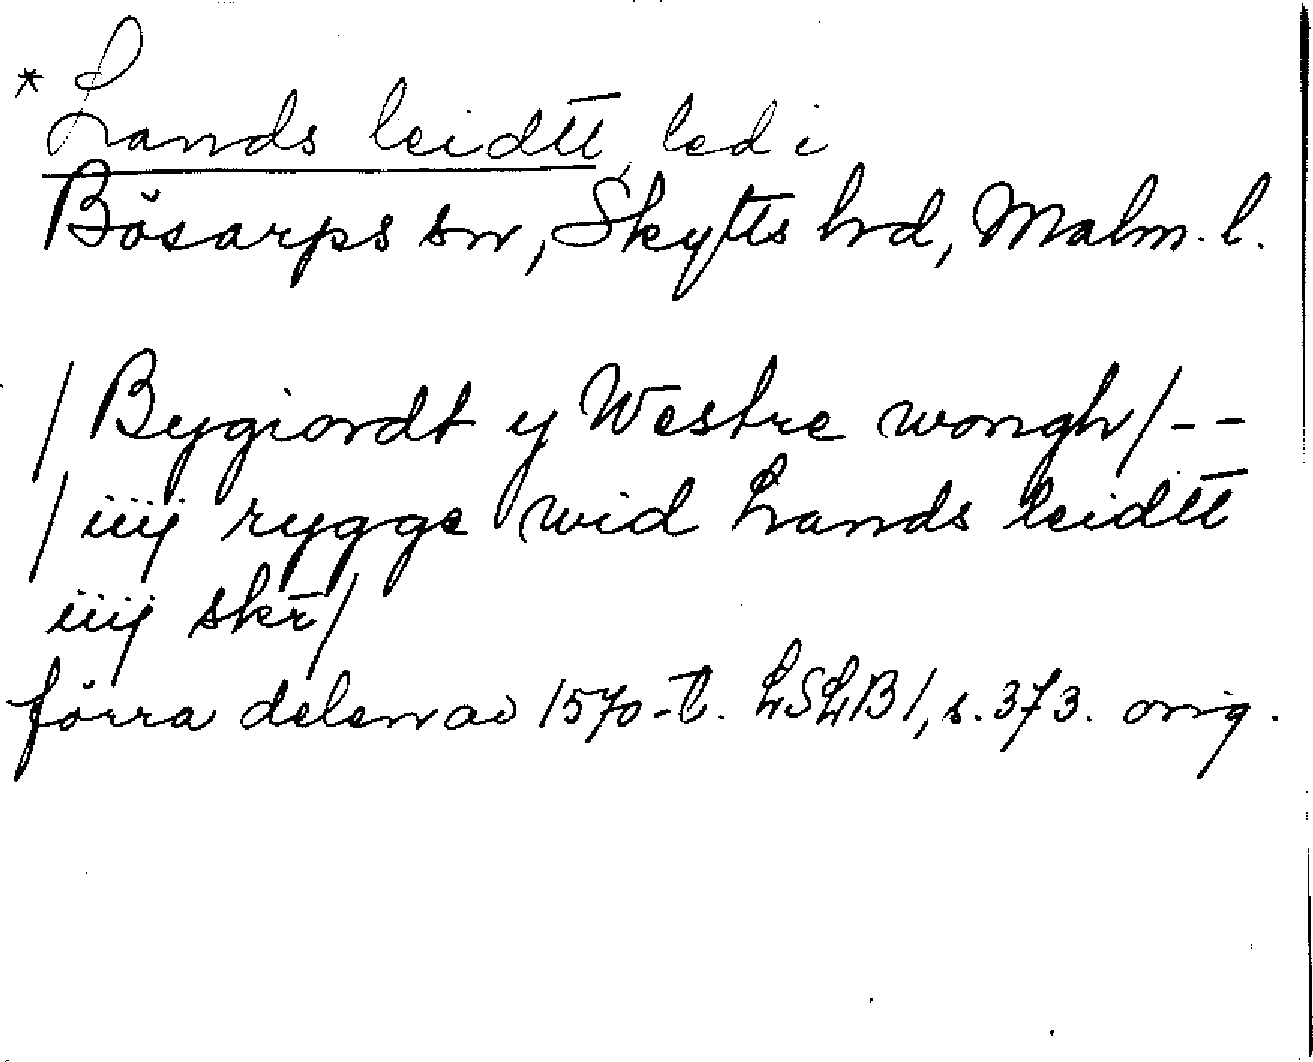 * Lands leidtt, led i
Bösarps sn, Skytts hd, Malm. l.
/ Bygiordt y Westre wongh / - -
/ iiij rygge wid Lands leidtt
iiij skr̄ /
förra delen av 1570-t. LSLB 1, s. 373. orig.